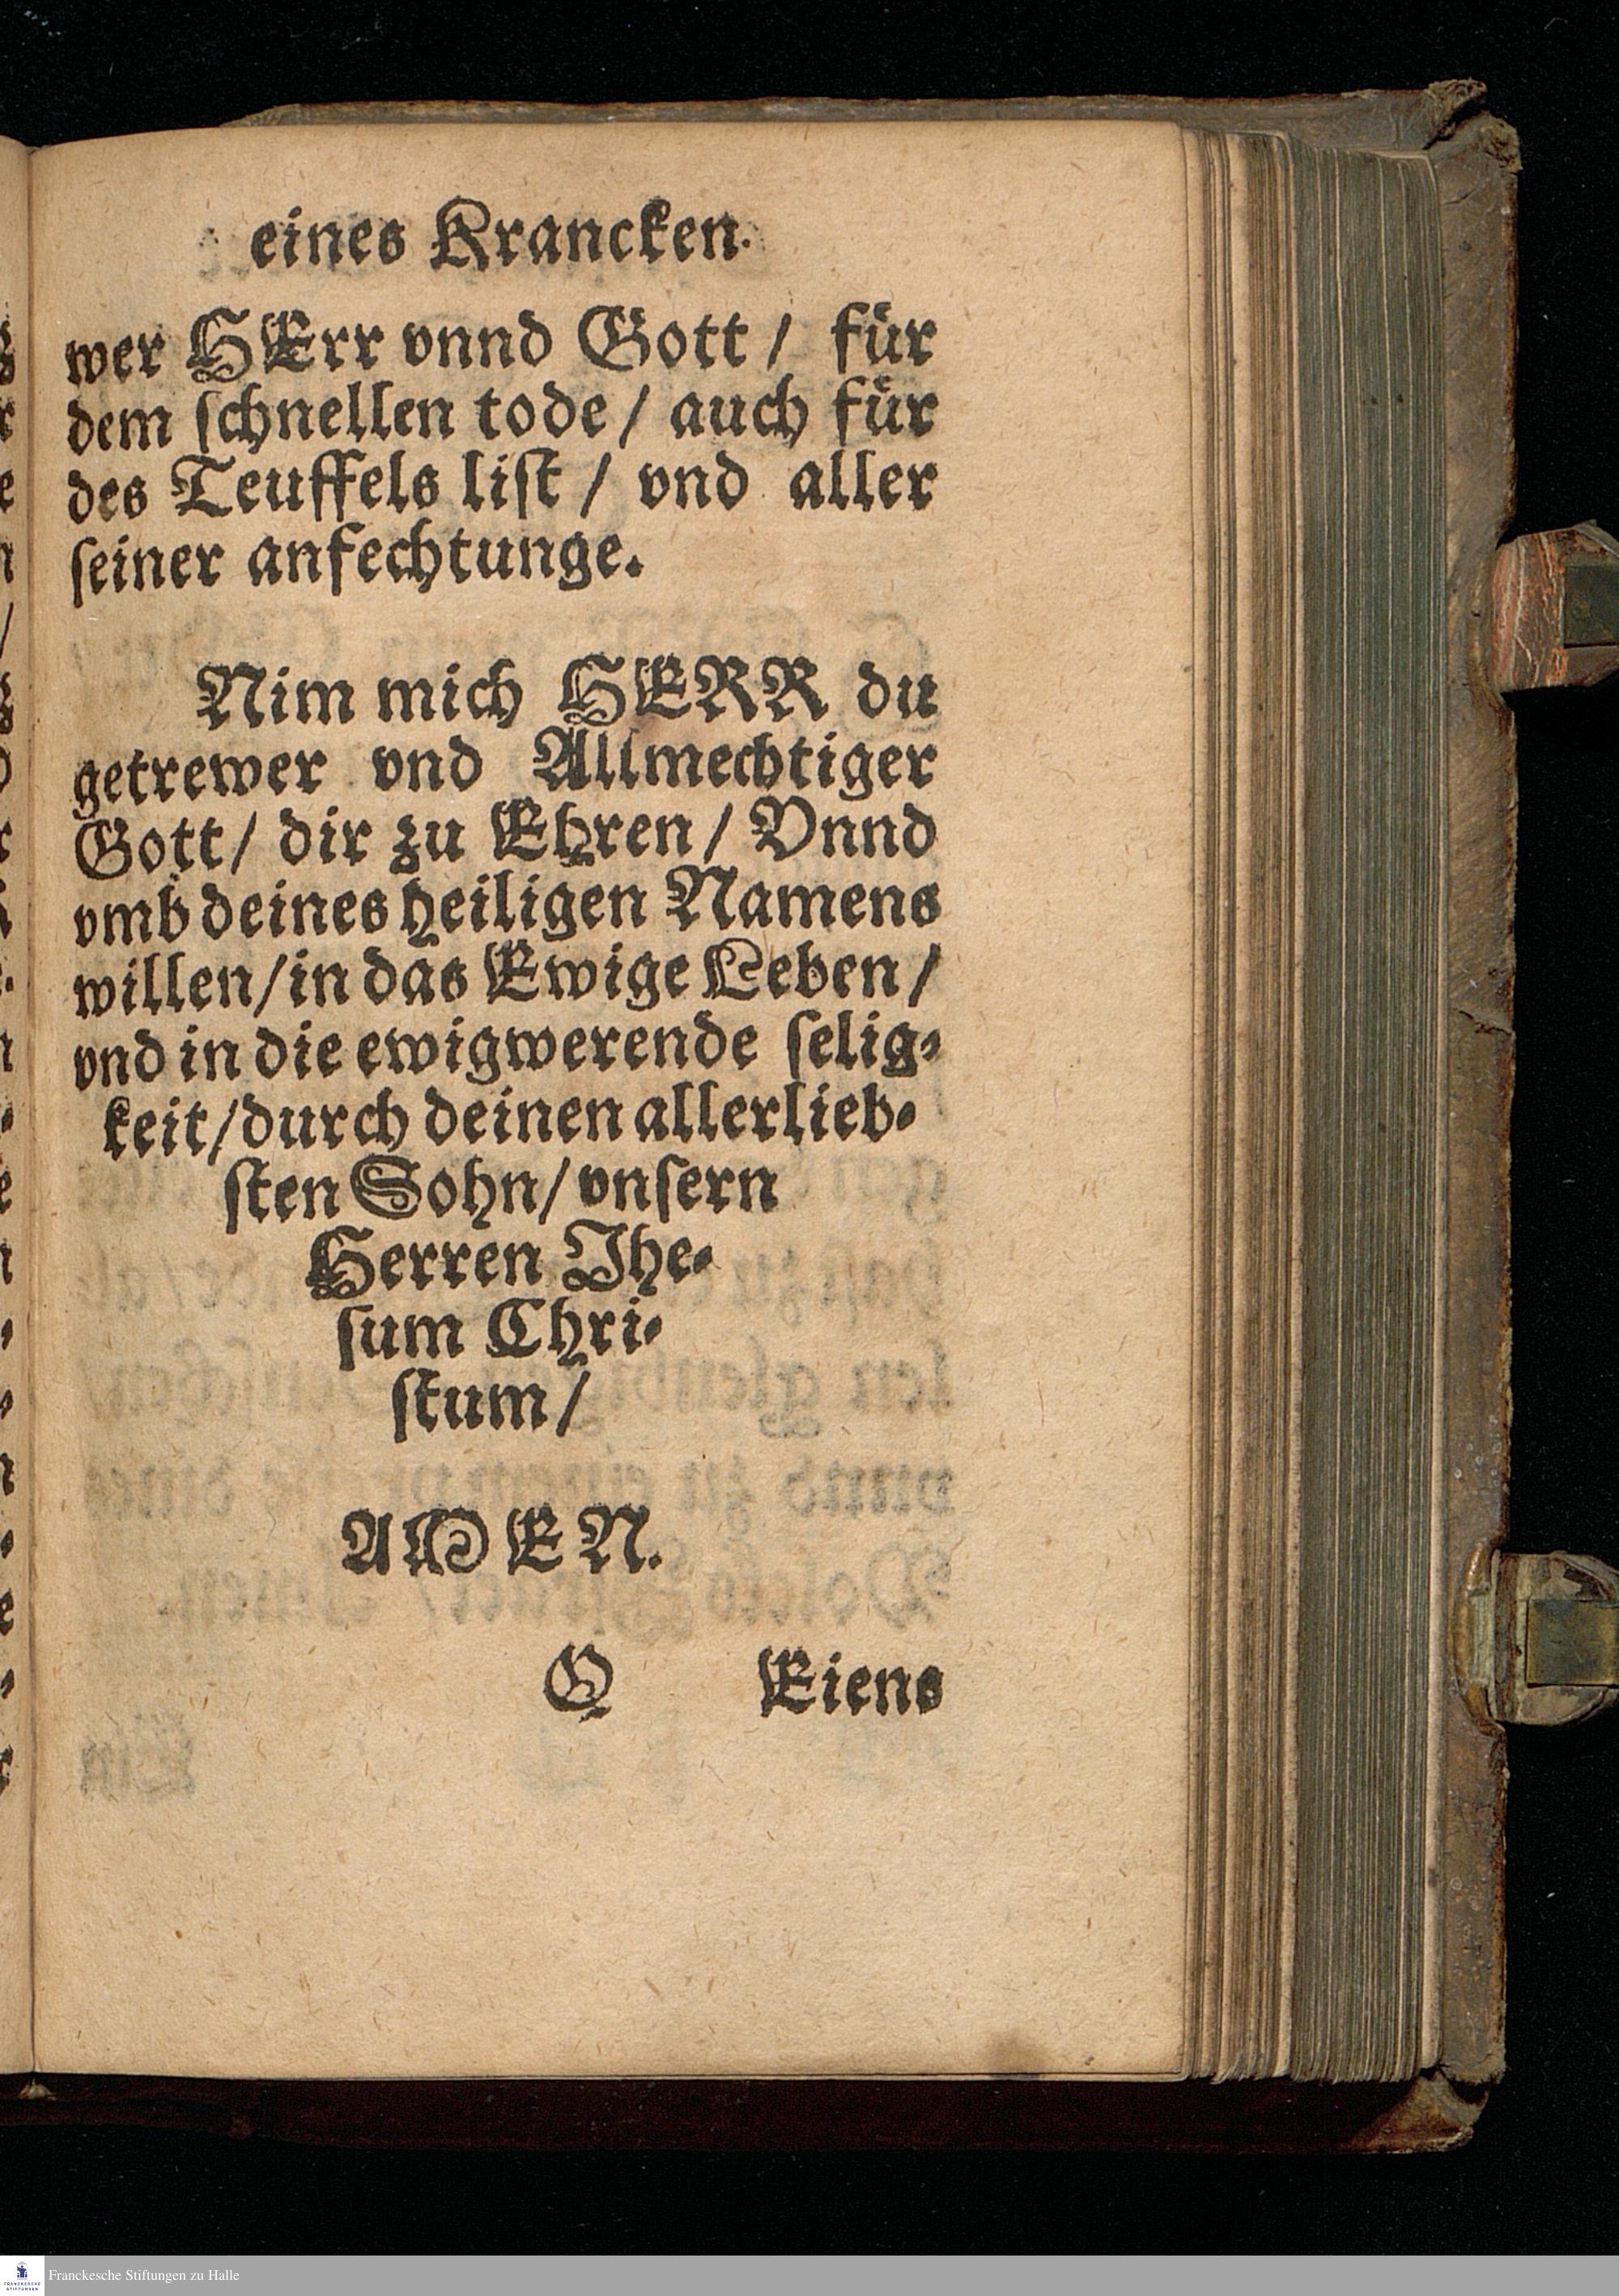 eines Krancken.
wer HErr vnnd Gott / für
dem ſchnellen tode / auch für
des Teuffels liſt / vnd aller
ſeiner anfechtunge.
Nim mich HERR du
getrewer vnd Allmechtiger
Gott / dir zu Ehren / Vnnd
vmb deines heiligen Namens
willen / in das Ewige Leben /
vnd in die ewigwerende ſelig⸗
keit / durch deinen allerlieb⸗
ſten Sohn / vnſern
Herren Jhe⸗
ſum Chri⸗
ſtum /
AMEN.
Q Eiens
Franckesche Stiftungen zu Halle